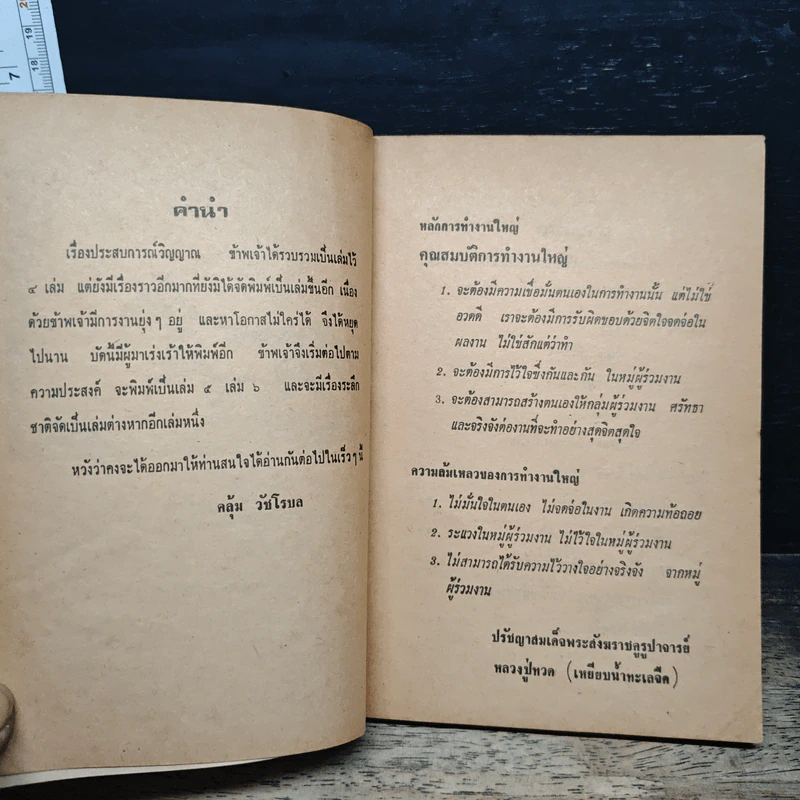 คำนำ
เรื่องประสบการณ์วิญญาณ ข้าพเจ้าได้รวบรวมเป็นเล่มไว้
๔ เล่ม แต่ยังมีเรื่องราวอีกมากที่ยังมิได้จัดพิมพ์เป็นเล่มขึ้นอีก เนื่อง
ด้วยข้าพเจ้ามีการงานยุ่งๆ อยู่ และหาโอกาสไม่ใคร่ได้ จึงได้หยุด
ไปนาน บัดนี้มีผู้มาเร่งเร้าให้พิมพ์อีก ข้าพเจ้าจึงเริ่มต่อไปตาม
ความประสงค์ จะพิมพ์เป็นเล่ม ๕ เล่ม ๖ และจะมีเรื่องระลึก
ชาติจัดเป็นเล่มต่างหากอีกเล่มหนึ่ง
หวังว่าคงจะได้ออกมาให้ท่านสนใจได้อ่านกันต่อไปในเร็วๆ นี้
คลุ้ม วัชโรบล
หลักการทำงานใหญ่
คุณสมบัติการทำงานใหญ่
1. จะต้องมีความเชื่อมั่นตนเองในการทำงานนั้น แต่ไม่ใช่
อวดดี เราจะต้องมีการรับผิดชอบด้วยจิตใจจดจ่อใน
ผลงาน ไม่ใช่สักแต่ว่าทำ
2. จะต้องมีการไว้ใจซึ่งกันและกัน ในหมู่ผู้ร่วมงาน
3. จะต้องสามารถสร้างตนเองให้กลุ่มผู้ร่วมงาน ศรัทธา
และจริงจังต่องานที่จะทำอย่างสุดจิตสุดใจ
ความล้มเหลวของการทำงานใหญ่
1. ไม่มั่นใจในตนเอง ไม่จดจ่อในงาน เกิดความท้อถอย
2. ระแวงในหมู่ผู้ร่วมงาน ไม่ไว้ใจในหมู่ผู้ร่วมงาน
3. ไม่สามารถได้รับความไว้วางใจอย่างจริงจัง จากหมู่
ผู้ร่วมงาน
ปรัชญาสมเด็จพระสังฆราชคูรูปาจารย์
หลวงปู่ทวด (เหยียบน้ำทะเลจืด)
7
18
19